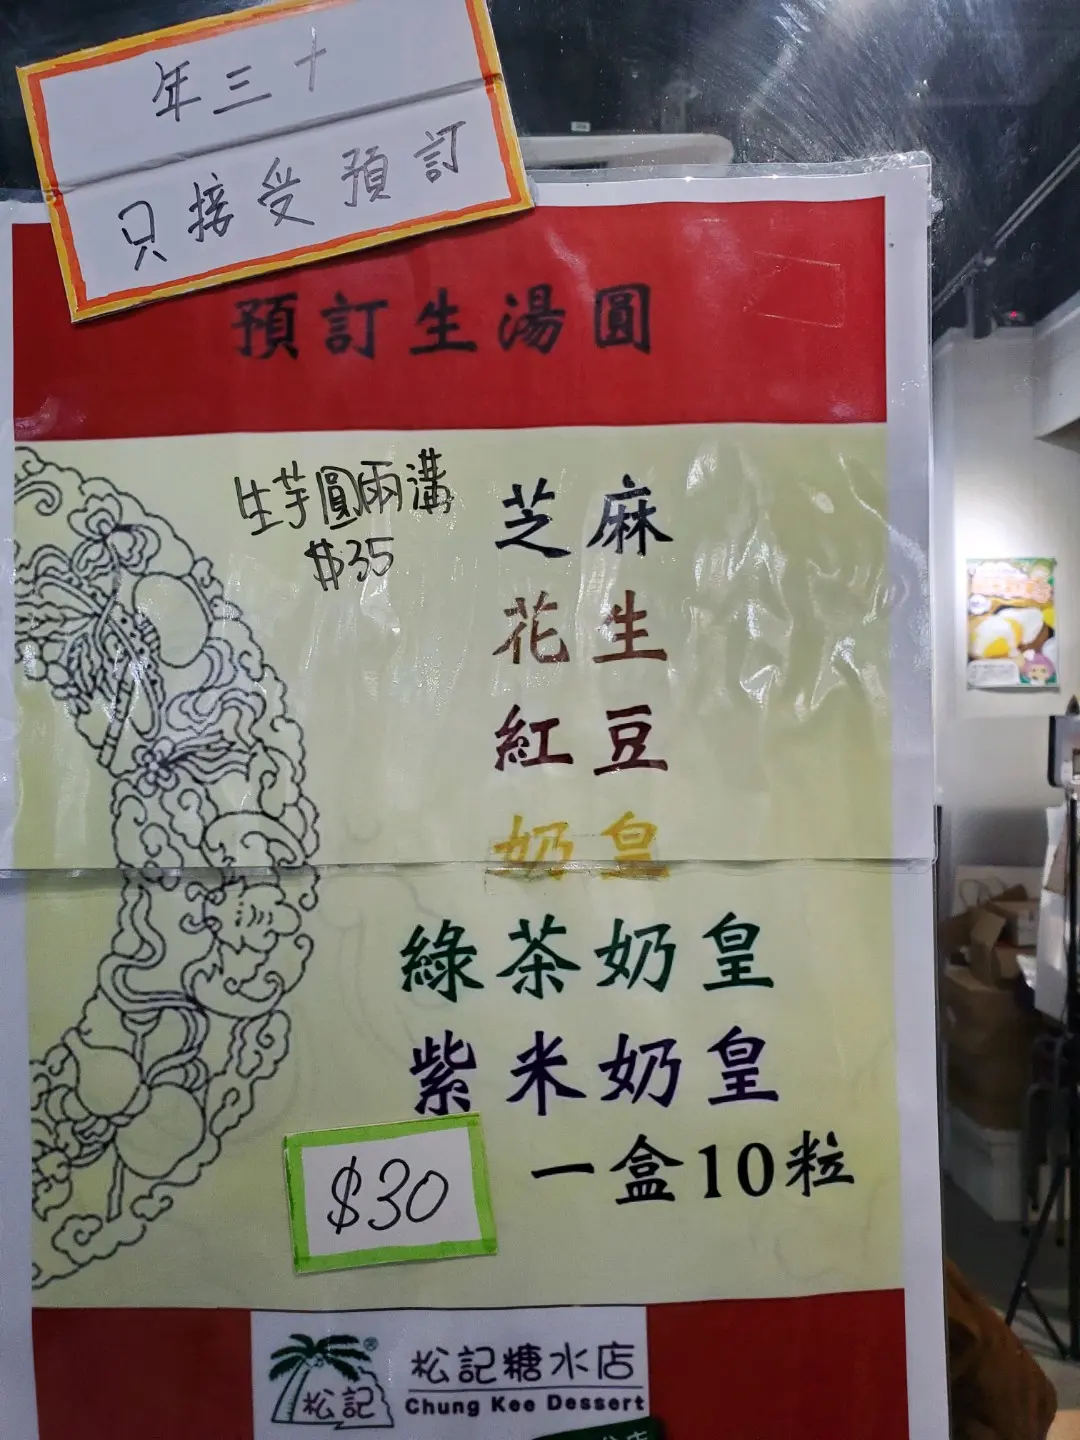 年三十
只接受預訂
預訂生湯圓
生芋圓兩溝
$35
芝麻
花生
紅豆
奶皇
綠茶奶皇
紫米奶皇
一盒10粒
$30
松記
松記糖水店
Chung Kee Dessert